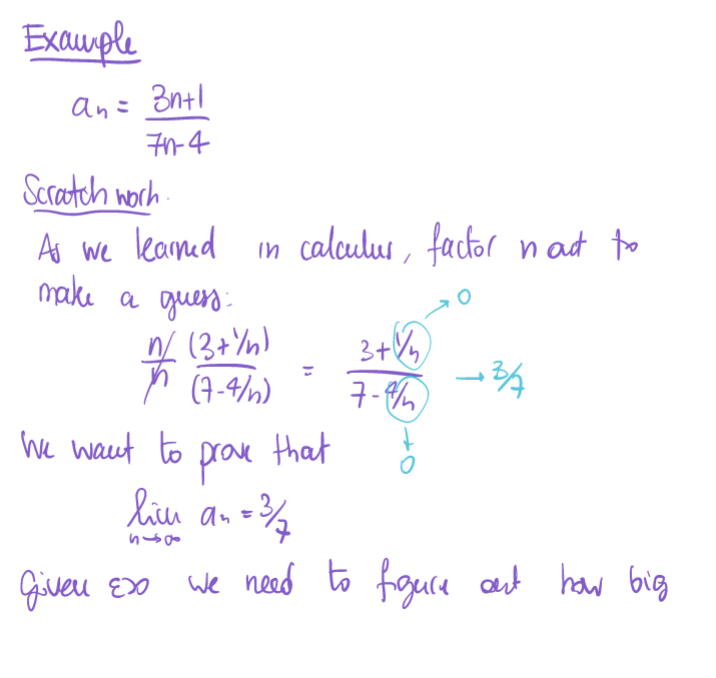 Example
an = 3n+1 / 7n-4
Scratch work.
As we learned in calculus, factor n out to
make a guess:
n/n (3+1/n) / (7-4/n) = 3+1/n / 7-4/n → 3/7
→ 0
→ 0
We want to prove that
lim n→∞ an = 3/7
Given ε>0 we need to figure out how big